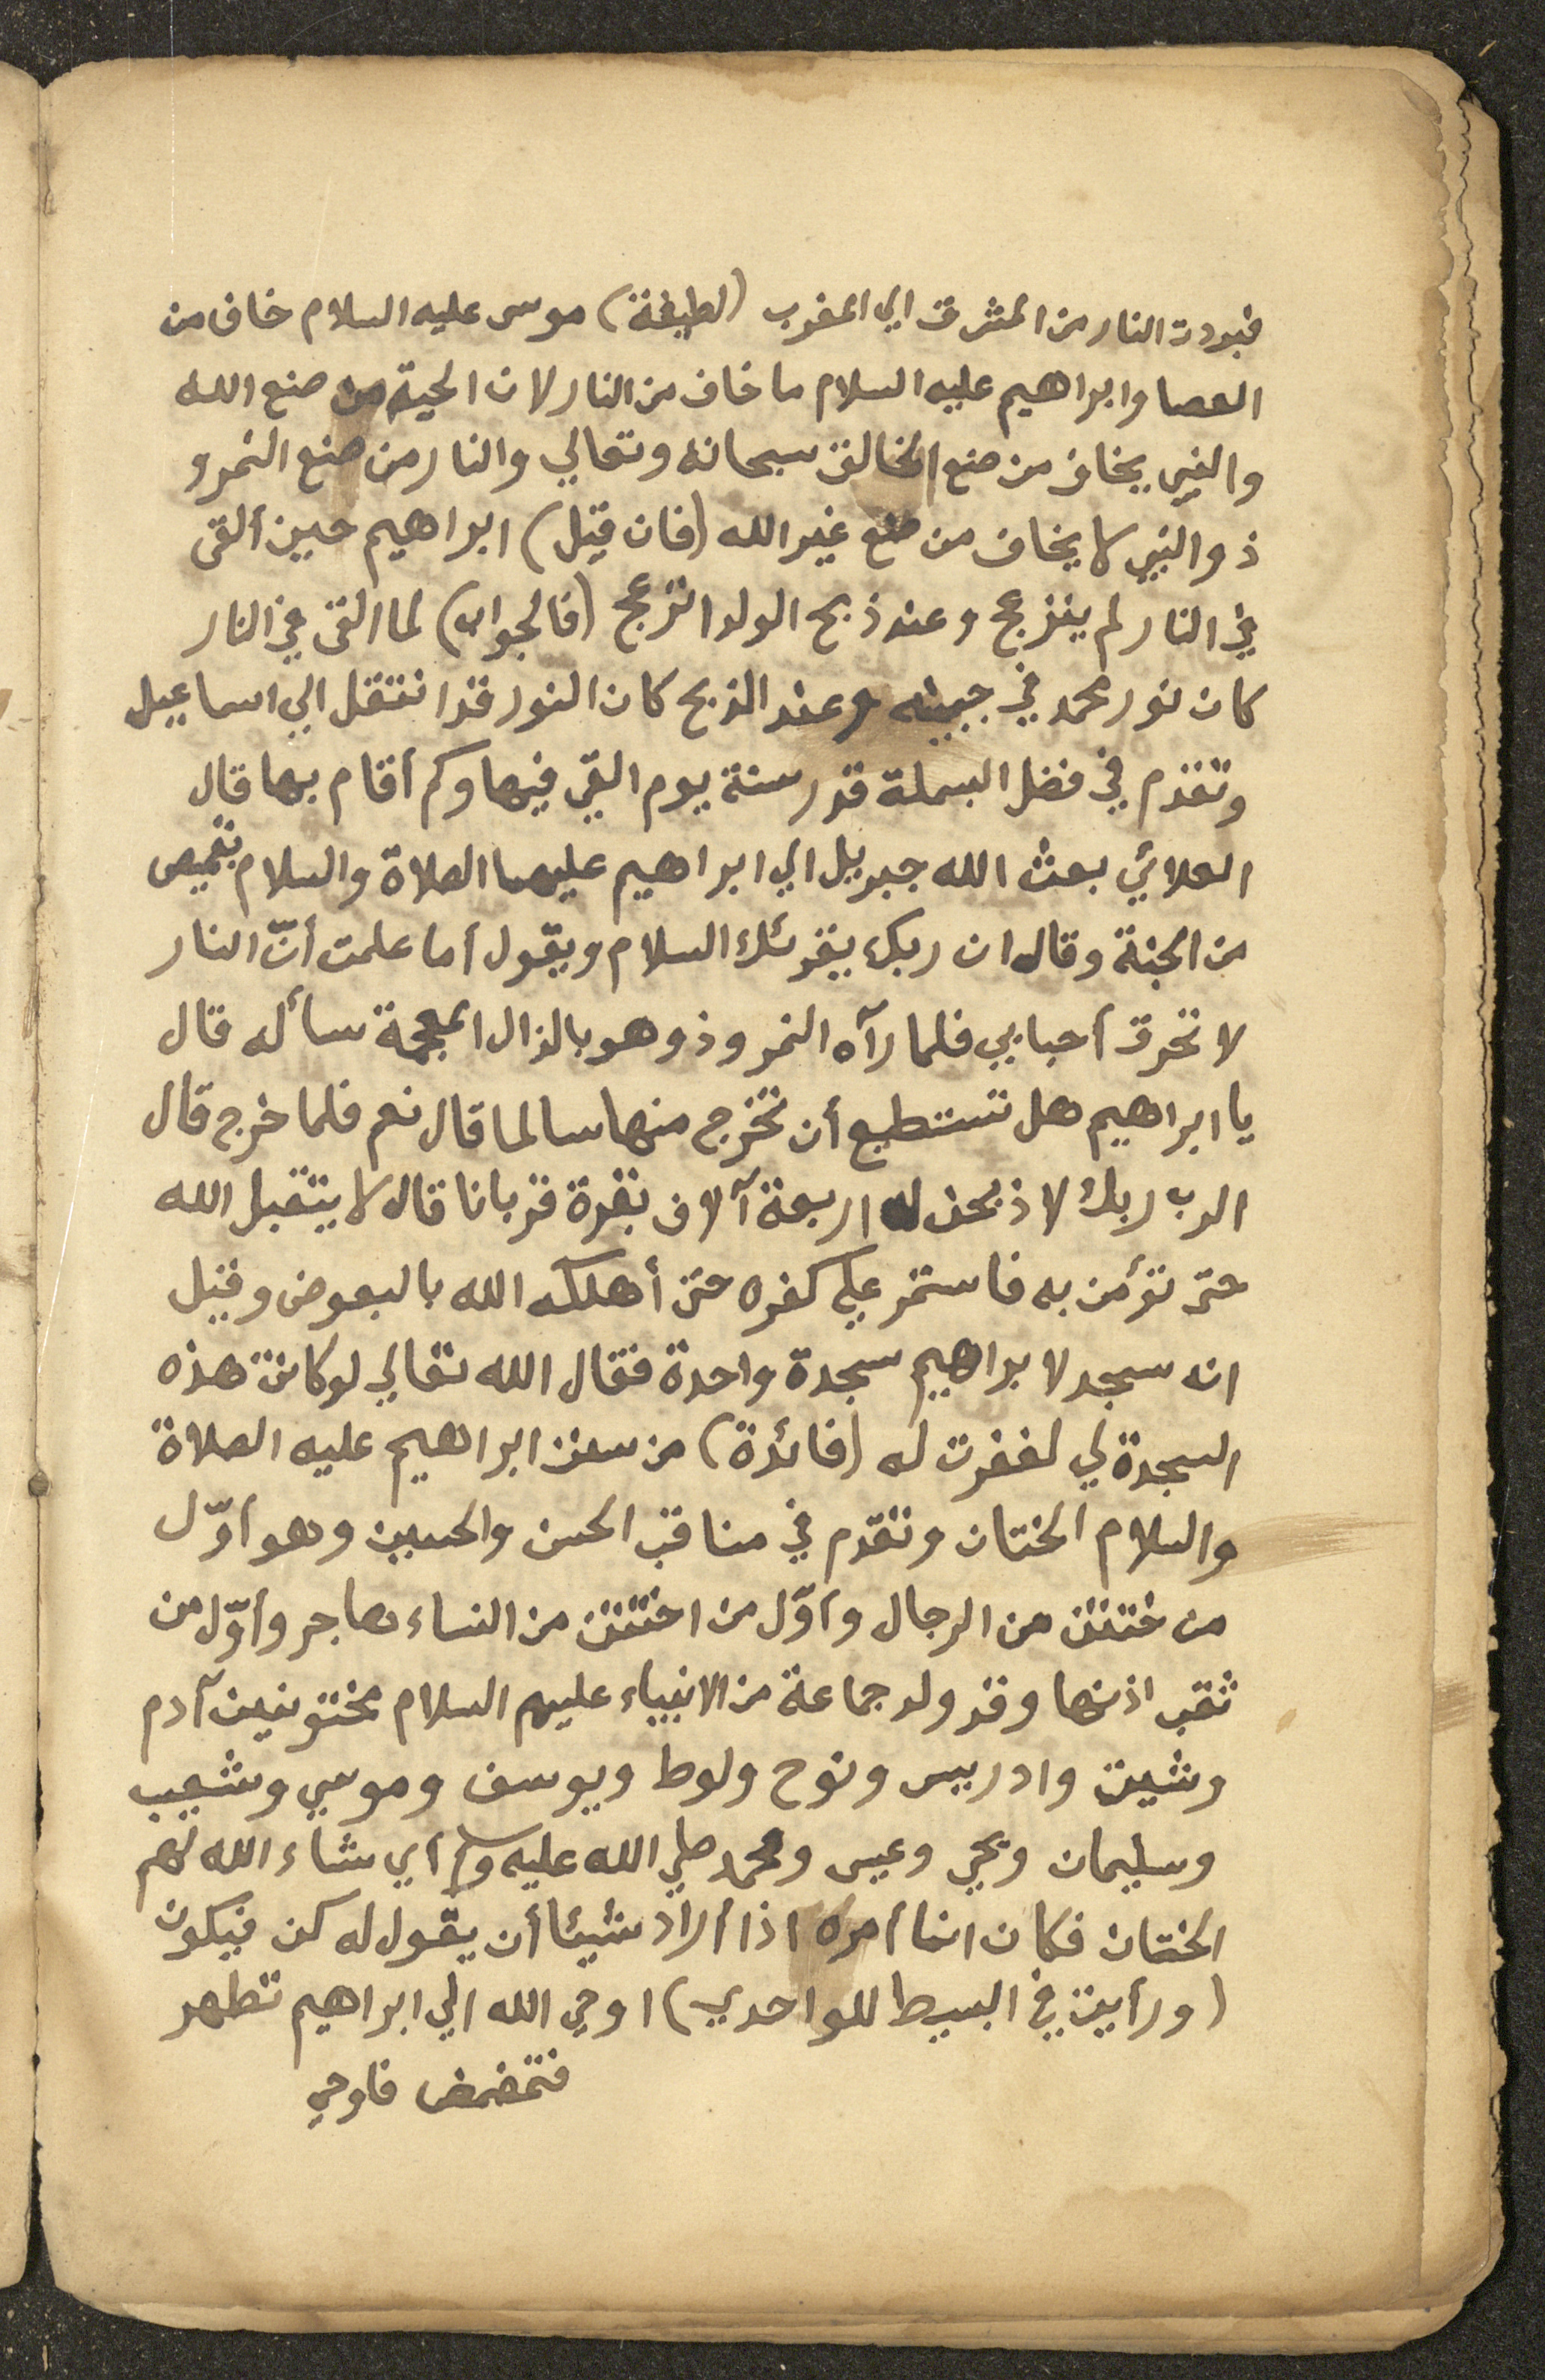 فبردت النار من المشرق الي المغرب (لطيفة) موسى عليه السلام خاف من
العصا وابراهيم عليه السلام ما خاف من النار لان الحية من صنع الله
والنبي يخاف من صنع الخالق سبحانه وتعالي والنار من صنع النمرو
ذ والنبي لا يخاف من صنع غير الله (فان قيل) ابراهيم حين ألقى
في النار لم ينزعج وعند ذبح الولد انزعج (فالجواب) لما القى في النار
كان نور محمد في جبينه وعند الذبح كان النور قد انتقل الي اسماعيل
وتقدم في فضل البسملة قدر سنة يوم القي فيها وكم أقام بها قال
العلائي بعث الله جبريل الي ابراهيم عليهما الصلاة والسلام بقميص
من الجنة وقال ان ربك يقرئك السلام ويقول أما علمت أنّ النار
لا تحرق أحبابي فلما رآه النمروذ وهو بالذال المعجمة سأله قال
يا ابراهيم هل تستطيع أن تخرج منها سالما قال نعم فلما خرج قال
الرب ربك لاذبحن له اربعة آلاف بقرة قربانا قال لا يتقبل الله
حتى تؤمن به فاستمر علي كفره حتى أهلكه الله بالبعوض وقيل
انه سجد لابراهيم سجدة واحدة فقال الله تعالي لو كانت هذه
السجدة لي لغفرت له (فائدة) من سنن ابراهيم عليه الصلاة
والسلام الختان وتقدم في مناقب الحسن والحسين وهو أوّل
من ختتن من الرجال وأوّل من اختتن من النساء هاجر وأوّل من
ثقب اذنها وقد ولد جماعة من الانبياء عليهم السلام مختونين آدم
وشيث وادريس ونوح ولوط ويوسف وموسي وشعيب
وسليمان ويحي وعيسى ومحمد صلي الله عليه وسلم أي شاء الله لهم
الختان فكان انما أمره اذا أراد شيئا أن يقول له كن فيكون
(ورأيت في البسيط للواحدي) اوحي الله الي ابراهيم تطهر
فتمضمض فاوحي